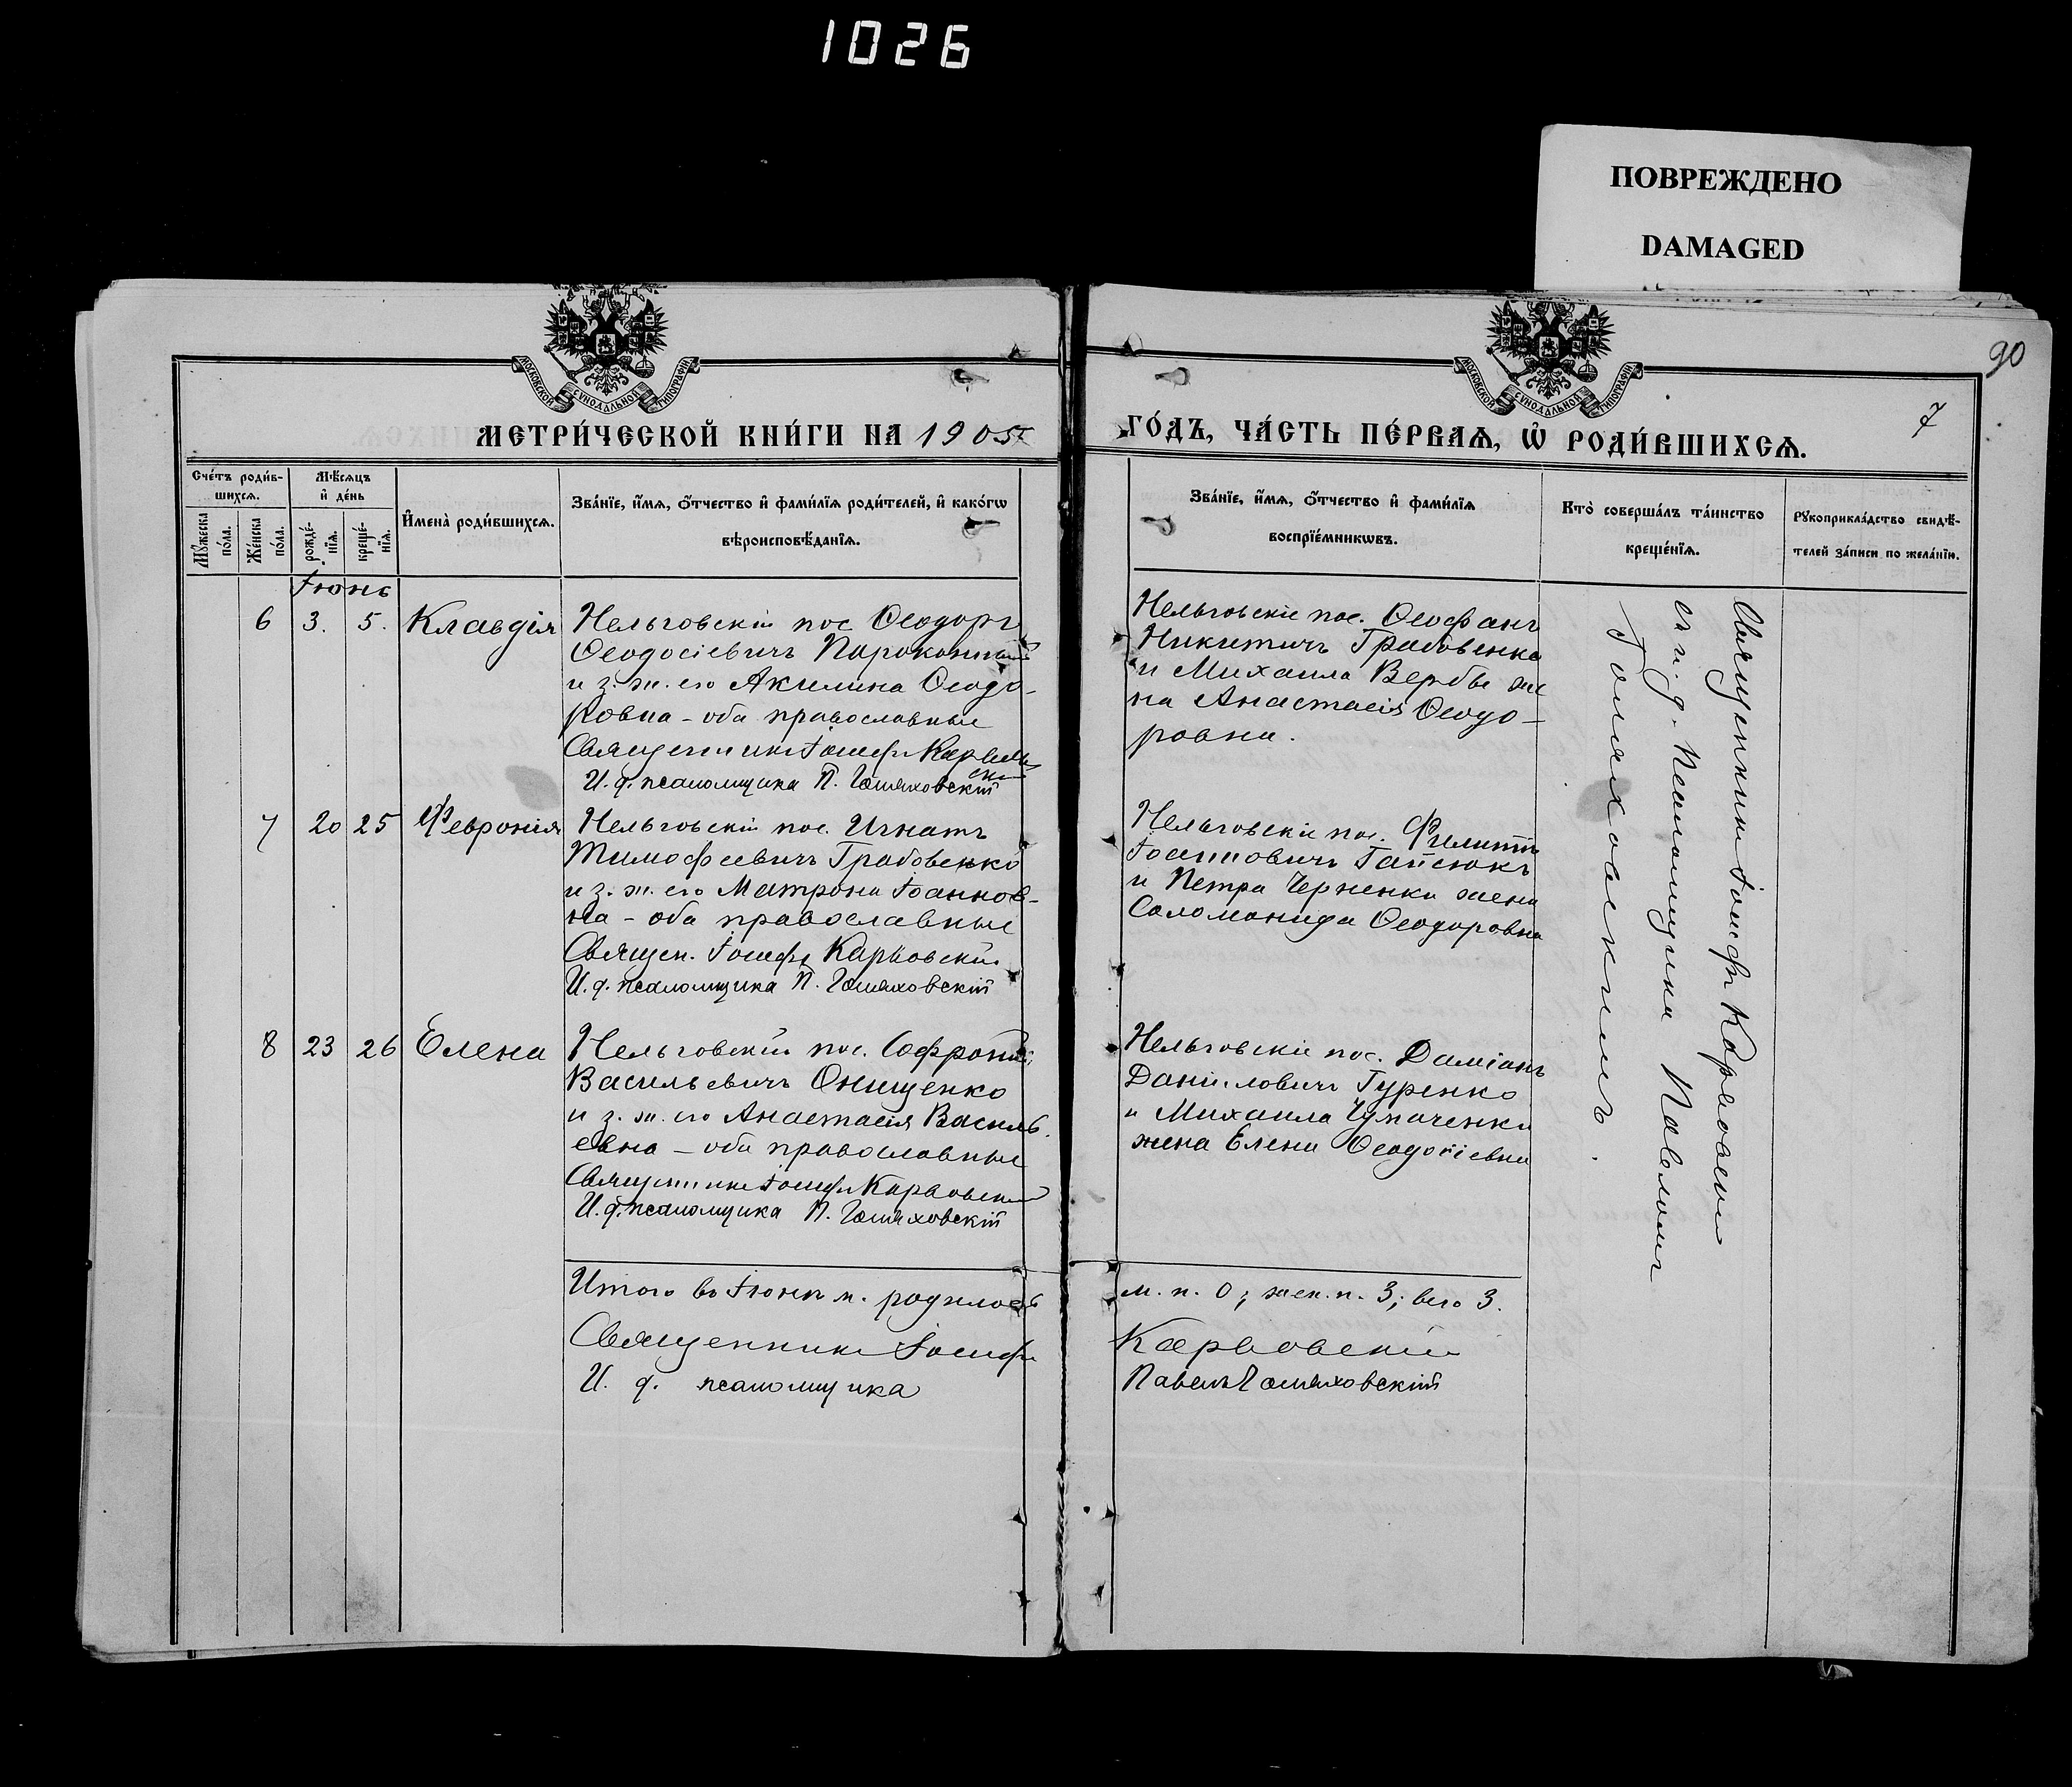 1026
ПОВРЕЖДЕНО
DAMAGED
90
МОСКОВСКОЙ СѴНОДАЛЬНОЙ ТИПОГРАФІИ
МОСКОВСКОЙ СѴНОДАЛЬНОЙ ТИПОГРАФІИ
7
МЕТРИ́ЧЕСКОЙ КНИ́ГИ НА 1905
ГО́ДЪ, ЧА́СТЬ ПЕ́РВАѦ, Ѡ РОДИ́ВШИХСѦ.
Сче́тъ роди́в-
шихсѧ.
Мꙋ́жеска
по́ла.
Же́нска
по́ла.
Мѣ́сѧцъ
и҆ де́нь
рожде́-
нїѧ.
креще́-
нїѧ.
И҆мена̀ роди́вшихсѧ.
Зва́нїе, и҆́мѧ, ѻ҆́тчество и҆ фами́лїѧ роди́телей, и҆ како́гѡ
вѣроисповѣ́данїѧ.
Зва́нїе, и҆́мѧ, ѻ҆́тчество и҆ фами́лїѧ
воспрїе́мникѡвъ.
Кто̀ соверша́лъ та́инство
креще́нїѧ.
Рꙋкоприкла́дство свидѣ́-
телей за́писи по жела́нїю.
Іюнь
6 3. 5. Клавдія
Нельговскій пос Ѳеодоръ
Ѳеодосіевичъ Пароконный
и з. ж. его Акилина Ѳеодо-
ровна - оба православные
Священникъ Іосифъ Карвовскій
И. д. псаломщика П. Голяховскій
Нельговскіе пос. Ѳеофанъ
Никитичъ Грабовенко
и Михаила Вербы же
на Анастасія Ѳеодо-
ровна.
7 20 25 Февронія
Нельговскій пос. Игнатъ
Тимофеевичъ Грабовенко
и з. ж. его Матрона Іоаннов-
на - оба православные
Священ. Іосифъ Карвовскій
И. д. псаломщика П. Голяховскій
Нельговскіе пос. Филиппъ
Іоанновичъ Гапсюкъ
и Петра Черненка жена
Соломонида Ѳеодоровна
8 23 26 Елена
Нельговскій пос. Софроній
Васильевичъ Онищенко
и з. ж. его Анастасія Василь
евна - оба православные
Священникъ Іосифъ Карвовскій
И. д. псаломщика П. Голяховскій
Нельговскіе пос. Даміанъ
Даніиловичъ Гуренко
и Михаила Чумаченка
жена Елена Ѳеодосіевна
Священникъ Іосифъ Карвовскій
съ и. д. псаломщика Павломъ
Голяховскимъ.
Итого въ Іюнѣ м. родилось
м. п. 0; жен. п. 3; всего 3.
Священникъ Іосифъ
Карвовскій
И. д. псаломщика
Павелъ Голяховскій